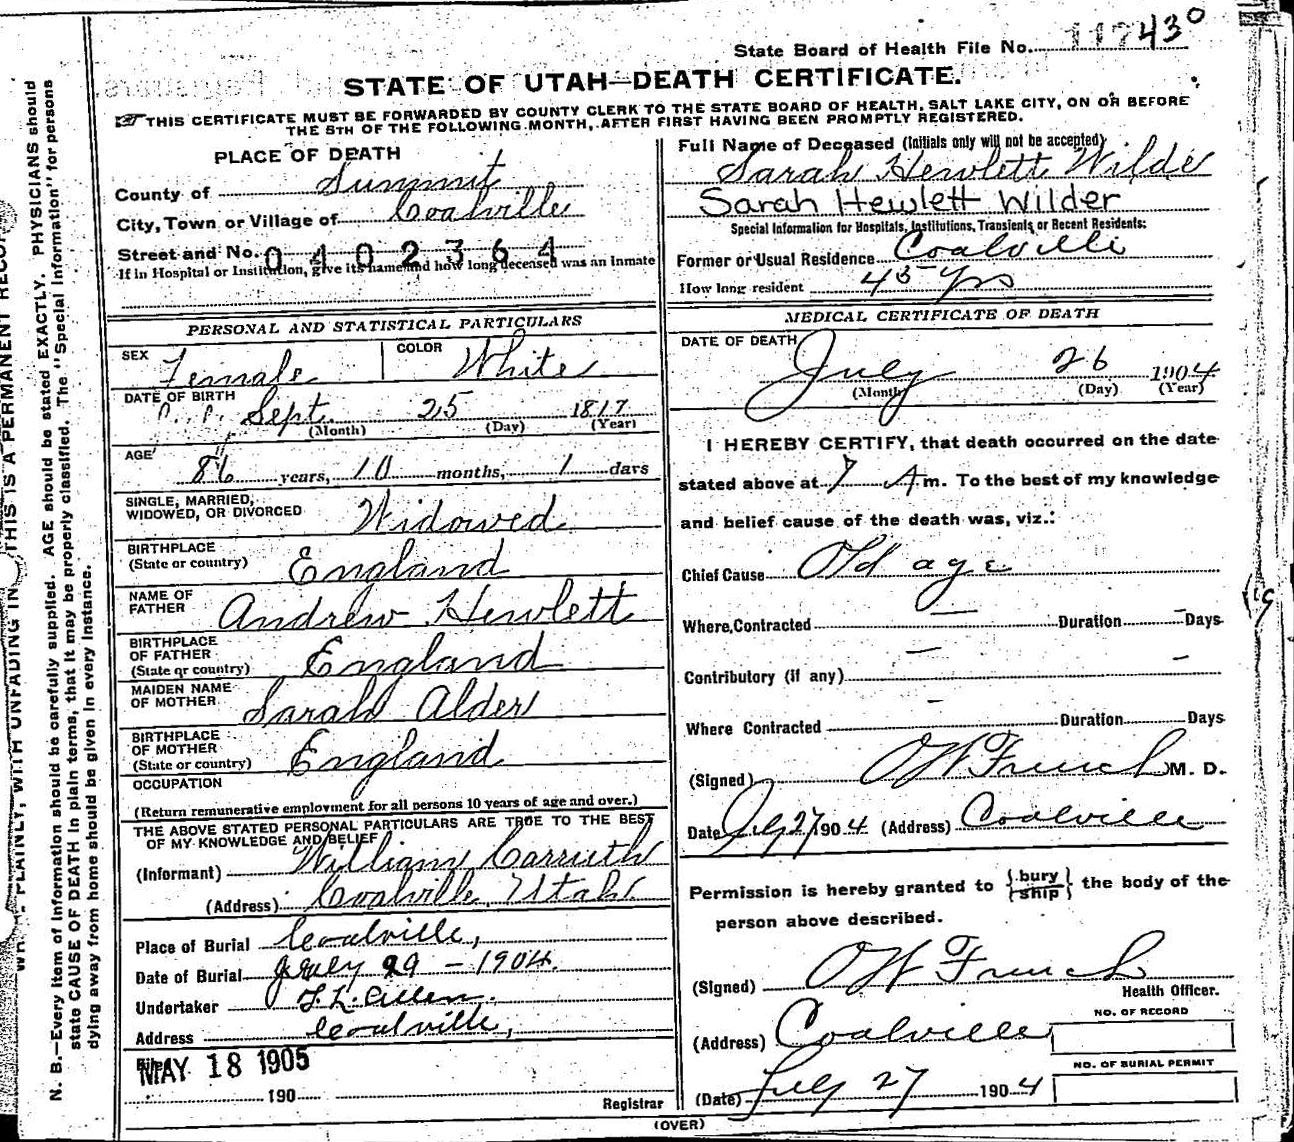 State Board of Health File No. 430
STATE OF UTAH—DEATH CERTIFICATE.
THIS CERTIFICATE MUST BE FORWARDED BY COUNTY CLERK TO THE STATE BOARD OF HEALTH, SALT LAKE CITY, ON OR BEFORE
THE 5TH OF THE FOLLOWING MONTH, AFTER FIRST HAVING BEEN PROMPTLY REGISTERED.
PLACE OF DEATH
County of Summit
City, Town or Village of Coalville
Street and No. 0402364
If in Hospital or Institution, give its name and how long deceased was an inmate
PERSONAL AND STATISTICAL PARTICULARS
SEX Female COLOR White
DATE OF BIRTH Sept. 25 1817
(Month) (Day) (Year)
AGE 86 years, 10 months, 1 days
SINGLE, MARRIED,
WIDOWED, OR DIVORCED Widowed
BIRTHPLACE
(State or country) England
NAME OF
FATHER Andrew Hewlett
BIRTHPLACE
OF FATHER
(State or country) England
MAIDEN NAME
OF MOTHER Sarah Alder
BIRTHPLACE
OF MOTHER
(State or country) England
OCCUPATION
(Return remunerative employment for all persons 10 years of age and over.)
THE ABOVE STATED PERSONAL PARTICULARS ARE TRUE TO THE BEST
OF MY KNOWLEDGE AND BELIEF
(Informant) William Carruth
(Address) Coalville, Utah
Place of Burial Coalville,
Date of Burial July 29 - 1904.
Undertaker T. L. Allen.
Address Coalville,
MAY 18 1905
190
Registrar
Full Name of Deceased (Initials only will not be accepted)
Sarah Hewlett Wilde
Sarah Hewlett Wilder
Special Information for Hospitals, Institutions, Transients or Recent Residents:
Former or Usual Residence Coalville
How long resident 45 yrs
MEDICAL CERTIFICATE OF DEATH
DATE OF DEATH July 26 1904
(Month) (Day) (Year)
I HEREBY CERTIFY, that death occurred on the date
stated above at 7 A m. To the best of my knowledge
and belief cause of the death was, viz.:
Chief Cause Old age
Where Contracted — Duration — Days
Contributory (if any) — —
Where Contracted — Duration Days
(Signed) O W French M. D.
Date July 27 1904 (Address) Coalville
Permission is hereby granted to { bury ship } the body of the
person above described.
(Signed) O W French
Health Officer.
(Address) Coalville
NO. OF RECORD
NO. OF BURIAL PERMIT
(Date) July 27 1904
(OVER)
N. B.—Every item of information should be carefully supplied. AGE should be stated EXACTLY. PHYSICIANS should
state CAUSE OF DEATH in plain terms, that it may be properly classified. The "Special Information" for persons
dying away from home should be given in every instance.
PLAINLY, WITH UNFADING IN THIS IS A PERMANENT RECO